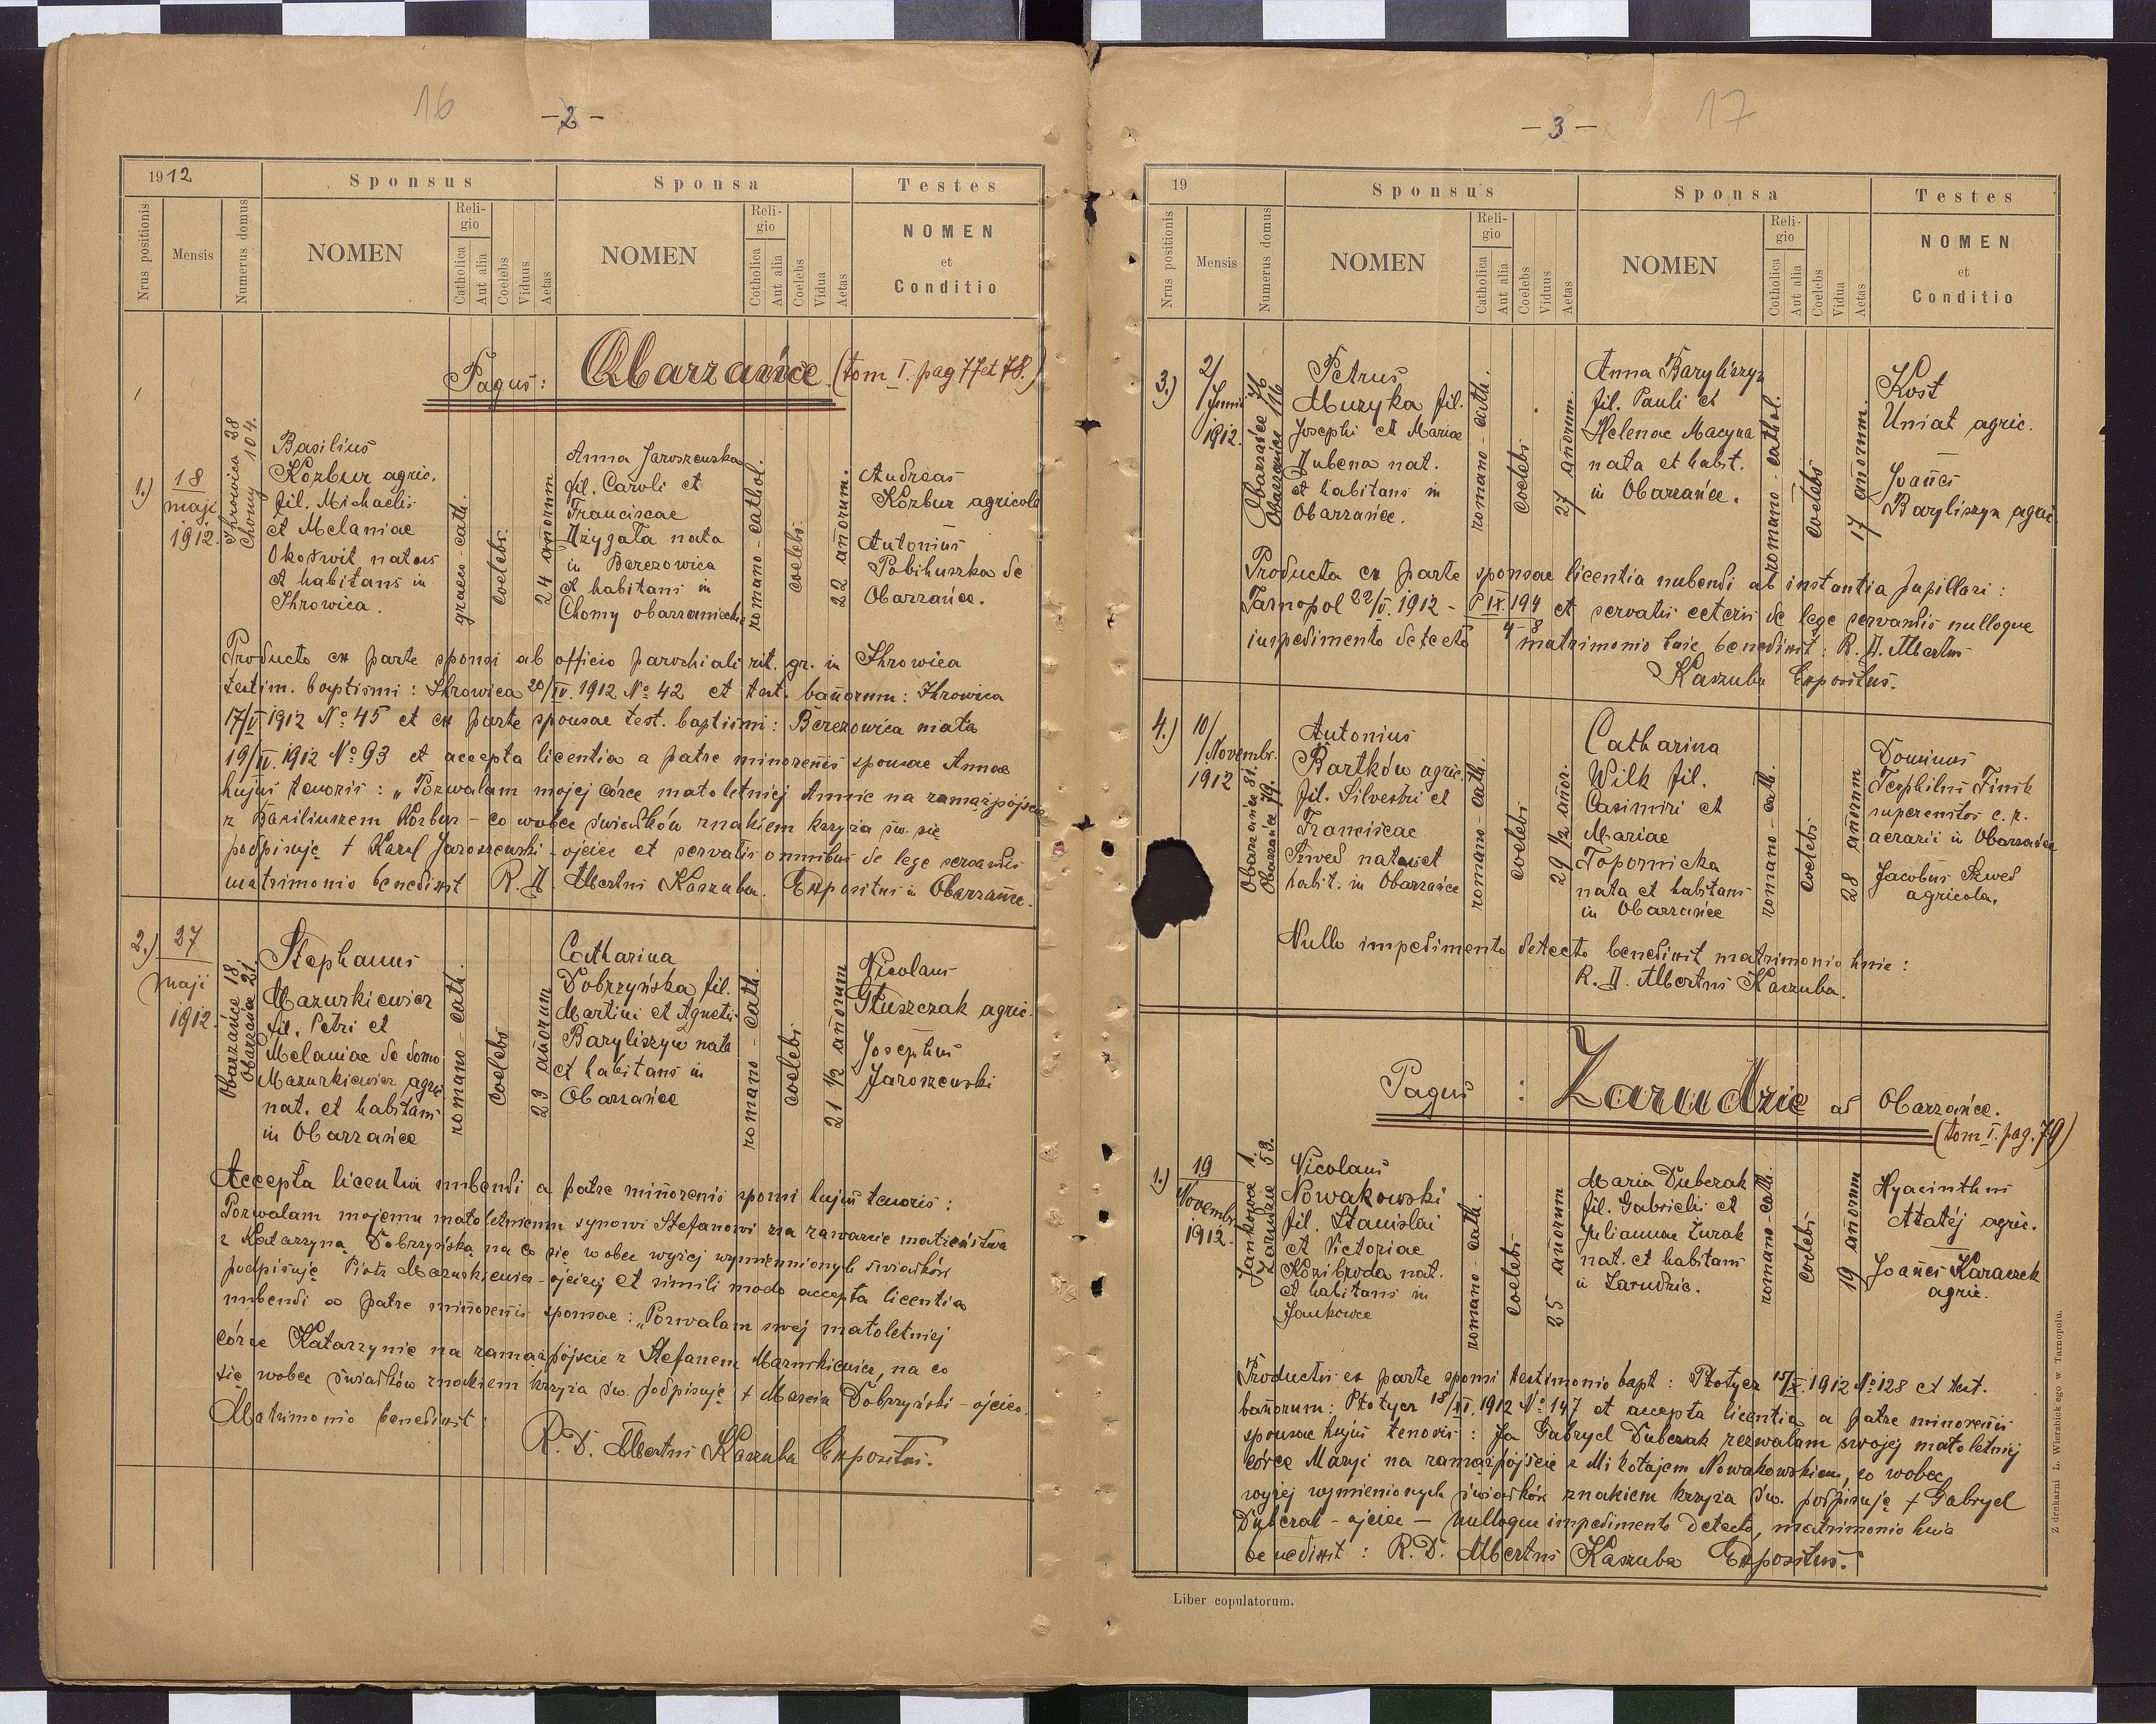 16
- 2 -
1912
Sponsus
Sponsa
Testes
Nrus positionis
Mensis
Numerus domus
NOMEN
Reli-
gio
Catholica
Aut alia
Coelebs
Viduus
Aetas
NOMEN
Reli-
gio
Cotholica
Aut alia
Coelebs
Vidua
Aetas
NOMEN
et
Conditio
Pagus: Obarzańce (tom I. pag 77 et 78.)
1.)
18
maji
1912.
Ihrowica 28
Chomy 104.
Basilius
Kozbur agric.
fil. Michaelis
et Melaniae
Okoświt natus
et habitans in
Ihrowica.
graeco-cath.
coelebs.
24 añorum
Anna Jaroszewska
fil. Caroli et
Franciscae
Dżygała nata
in Berezowica
et habitans in
Chomy obarzanieckie
romano-cathol.
coelebs.
22 añorum.
Andreas
Kozbur agricola
Antonius
Pobihuszka de
Obarzańce.
Producto ex parte sponsi ab officio parochiali rit. gr. in Ihrowica
testim. baptismi: Ihrowica 20/IV. 1912 No 42 et test. bañorum: Ihrowica
17/V 1912 No 45 et ex parte sponsae test. baptismi: Berezowica mała
19/IV. 1912 No 93 et accepta licentia a patre minoreñis sponsae Annae
hujus tenoris: „Pozwalam mojej córce małoletniej Annie na zamążpójście
z Basiliuszem Kozbur - co wobec świadków znakiem krzyża św. się
podpisuję + Karol Jaroszewski - ojciec et servatis omnibus de lege servandis
matrimonio benedixit R. D. Albertus Kaszuba. Expositus in Obarzańce.
2.)
27
maji
1912.
Obarzańce 18.
Obarzańce 21.
Stephanus
Mazurkiewicz
fil. Petri et
Melaniae de domo
Mazurkiewicz agric.
nat. et habitans
in Obarzańce
romano-cath.
coelebs
23 añorum
Catharina
Dobrzyńska fil.
Martini et Agnetis
Baryliszyn nata
et habitans in
Obarzańce
romano-cath.
coelebs
21 1/2 añorum
Nicolaus
Głuszczak agric.
Josephus
Jaroszewski
Accepta licentia nubendi a patre miñorenis sponsi hujus tenoris:
Pozwalam mojemu małoletniemu synowi Stefanowi na zawarcie małżeństwa
z Katarzyną Dobrzyńską na co się wobec wyżej wymiennionych świadków
podpisuję Piotr Mazurkiewicz - ojciec, et simili modo accepta licentia
nubendi a patre miñorenis sponsae: „Pozwalam swej małoletniej
córce Katarzynie na zamążpójscie z Stefanem Mazurkiewicz, na co
się wobec świadków znakiem krzyża św. podpisuję + Marcin Dobrzyński - ojciec.
Matrimonio benedixit:
R. D. Albertus Kaszuba Expositus.
17
- 3 -
19
Sponsus
Sponsa
Testes
Nrus positionis
Mensis
Numerus domus
NOMEN
Reli-
gio
Catholica
Aut alia
Coelebs
Viduus
Aetas
NOMEN
Reli-
gio
Cotholica
Aut alia
Coelebs
Vidua
Aetas
NOMEN
et
Conditio
3.)
2/
Junii
1912.
Obarzańce 76
Obarzańce 116
Petrus
Muzyka fil.
Josephi et Mariae
Dubena nat.
et habitans in
Obarzańce.
romano-cath.
coelebs
27 añorum.
Anna Baryliszyn
fil. Pauli et
Helenae Macyna
nata et habit.
in Obarzańce.
romano-cathol.
coelebs
17 añorum.
Kost
Uniat agric.
Joañes
Baryliszyn agric.
Producta ex parte sponsae licentia nubendi ab instantia pupillari:
Tarnopol 22/V. 1912 - P IX. 194 et servatis ceteris de lege servandis nulloque
4-8
impedimento detecto matrimonio huic benedixit: R. D. Albertus
Kaszuba Expositus.
4.)
10/
Novembr.
1912
Obarzańce 81.
Obarzańce 79.
Antonius
Bartków agric.
fil. Silvestri et
Franciscae
Szwed natus et
habit. in Obarzańce
romano-cath.
coelebs
29 1/2 añor.
Catharina
Wilk fil.
Casimiri et
Mariae
Topornicka
nata et habitans
in Obarzańce
romano-cath.
coelebs
28 añorum
Dominus
Teophilus Finik
supercustos c. r.
aerarii in Obarzańce
Jacobus Szwed
agricola.
Nullo impedimento detecto benedixit matrimonio huic:
R. D. Albertus Kaszuba.
Pagus : Zarudzie ad Obarzańce.
(tom I. pag. 79)
1.)
19
Novembr.
1912.
Jankowce 1.
Zarudzie 53.
Nicolaus
Nowakowski
fil. Stanislai
et Victoriae
Kozibroda nat.
et habitans in
Jankowce
romano-cath.
coelebs
25 añorum
Maria Dubczak
fil. Gabrielis et
Juliannae Żurak
nat. et habitans
in Zarudzie.
romano-cath.
coelebs
19 añorum
Hyacinthus
Małéj agric.
Joañes Karaczek
agric.
Productis ex parte sponsi testimonio bapt: Płotycz 15/X. 1912 No 128 et test.
bañorum: Płotycz 18/XI. 1912 No 147 et accepta licentia a patre minoreñis
sponsae hujus tenoris: Ja Gabryel Dubczak zezwalam swojej małoletniej
córce Maryi na zamążpójście z Mikołajem Nowakowskiem, co wobec
wyżej wymienionych świadków znakiem krzyża św. podpisuję + Gabryel
Dubczak - ojciec - nulloque impedimento detecto, matrimonio huic
benedixit: R. D. Albertus Kaszuba Expositus.
Liber copulatorum.
Z drukarni L. Wierzbickiego w Tarnopolu.